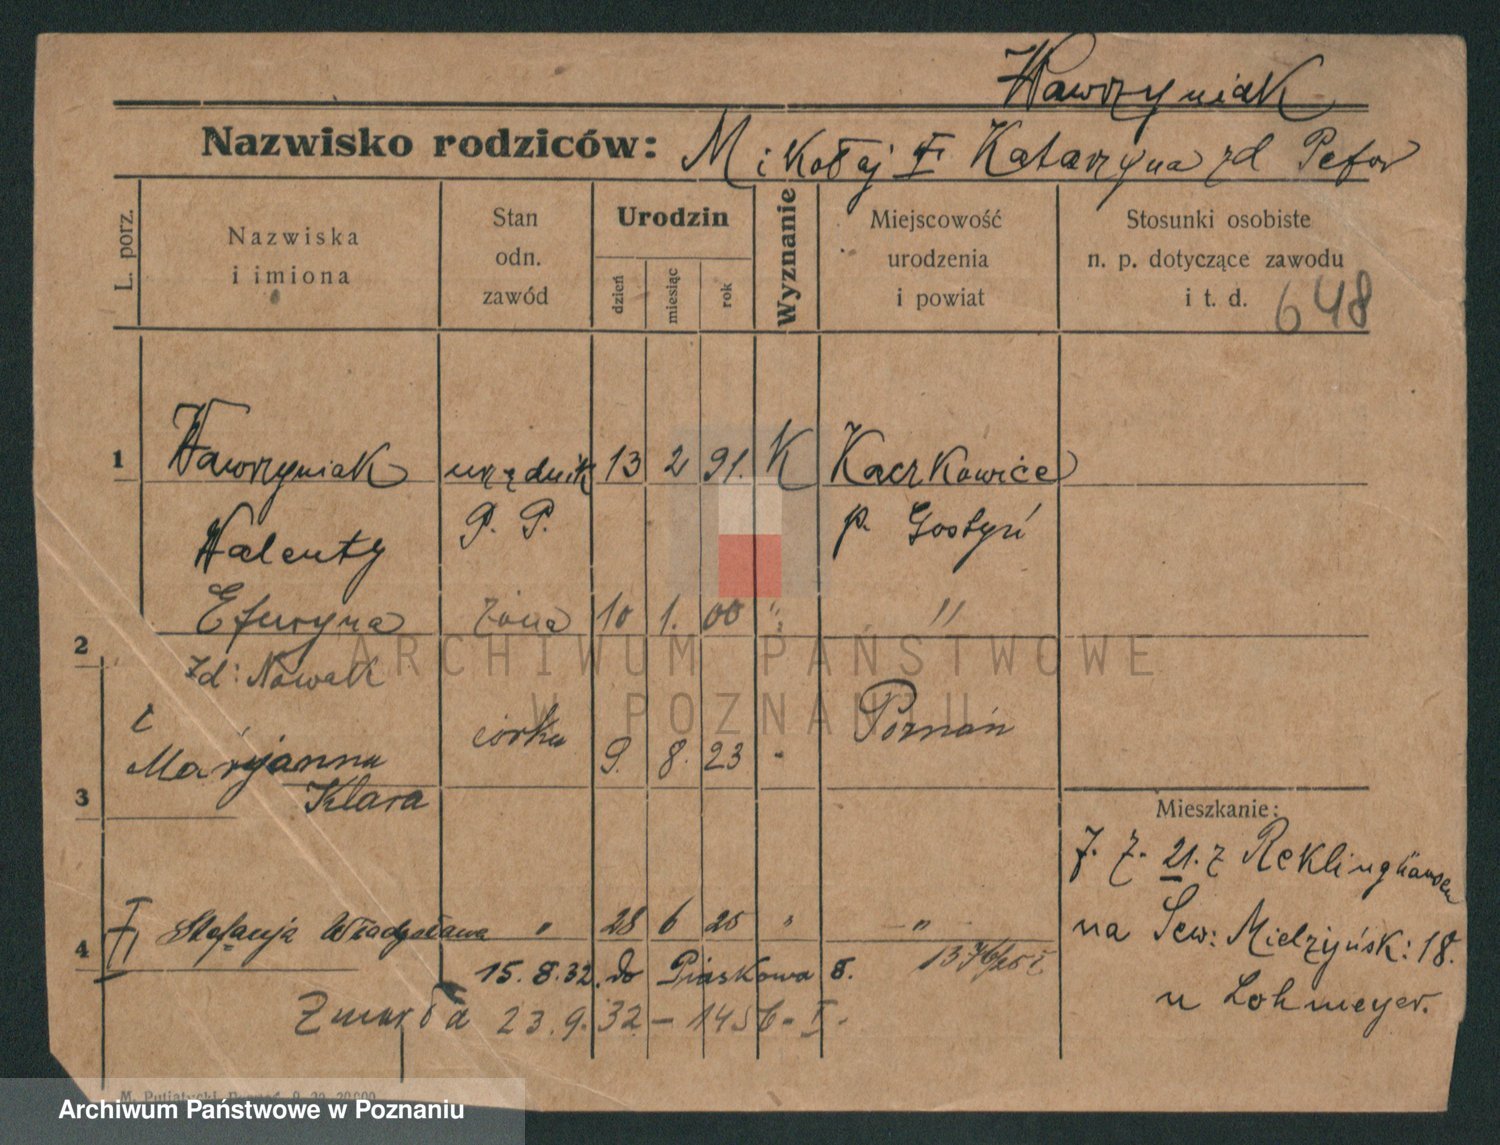 Wawrzyniak
Nazwisko rodziców: Mikołaj i Katarzyna zd
L. porz.
Nazwiska
i imiona
Stan
odn.
zawód
Urodzin
dzień
miesiąc
rok
Wyznanie
Miejscowość
urodzenia
i powiat
Stosunki osobiste
n. p. dotyczące zawodu
i t. d. 648
1 Wawrzyniak urzędnik 13 2 91. K Kaczkowice
Walenty P. P. p. Gostyń
2 Eufrozyna żona 10 1. 00 " "
Zd: Nowak
Maryjanna córka 9. 8. 23 " Poznań
3 Klara
Mieszkanie:
21. z Reklinghausen
na Sew: Mielżyńsk: 18.
u Lohmeyer.
4 II Stefanja Władysława " 28 6 25 " "
15. 8. 32. do Piaskowa 8. 1376/25 I
Zmarła 23. 9. 32 - 1456 - I -
ARCHIWUM PAŃSTWOWE
W POZNANIU
Archiwum Państwowe w Poznaniu